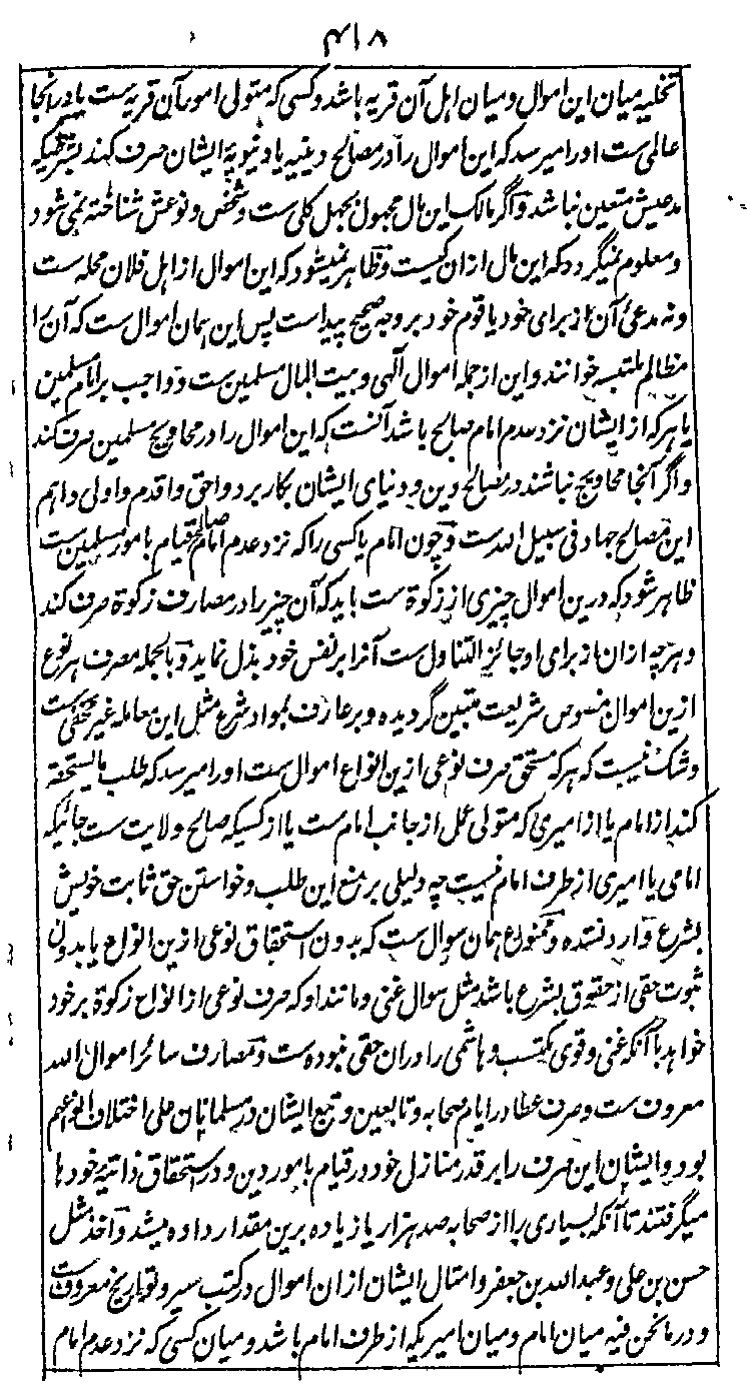 ۴۱۸
تخلیه میان این اموال و میان اهل آن قریه باشد و کسی که متولی امور آن قریه ست یا در انجا
عالمی ست او را میرسد که این اموال را در مصالح دینیه یا دنیویهٔ ایشان صرف کند بشرطیکه
مدعیش متعین نباشد و اگر مالک این مال مجهول بجهل کلی ست و شخص و نوعش شناخته نمی شود
و معلوم نمیگردد که این مال ازان کیست و ظاهر نمیشود که این اموال از اهل فلان محله ست
و نه مدعیٔ آن از برای خود یا قوم خود بر وجه صحیح پیداست پس این همان اموال ست که آن را
مظالم ملتبسه خوانند و این از جملهٔ اموال الٓهی و بیت المال مسلمین ست و واجب بر امام مسلمین
یا هر که از ایشان نزد عدم امام صالح باشد آنست که این اموال را در محاویج مسلمین صرف کند
و اگر آنجا محاویج نباشند در مصالح دین و دنیای ایشان بکار برد و احق و اقدم و اولی و اهم
این مصالح جهاد فی سبیل الله ست و چون امام یا کسی را که نزد عدم امام صالح قیام بامور مسلمین ست
ظاهر شود که درین اموال چیزی از زکوة ست باید که آن چیز را در مصارف زکوة صرف کند
و هرچه ازان از برای او جائز التناول ست آنرا بر نفس خود بذل نماید و بالجمله مصرف هر نوع
ازین اموال منصوص شریعت متبین گردیده و بر عارف بموارد شرع مثل این معامله غیر مخفی ست
و شک نیست که هر که مستحق صرف نوعی ازین انواع اموال ست او را میرسد که طلب ما یستحقه
کند از امام یا از امیری که متولی عمل از جانب امام ست یا از کسیکه صالح ولایت ست جائیکه
امامی یا امیری از طرف امام نیست چه دلیلی بر منع این طلب و خواستن حق ثابت خویش
بشرع وارد نشده و ممنوع همان سوال ست که بدون استحقاق نوعی ازین انواع یا بدون
ثبوت حقی از حقوق بشرع باشد مثل سوال غنی و مانند او که صرف نوعی از انواع زکوة بر خود
خواهد با آنکه غنی و قوی مکتسب و هاشمی را دران حقی نبوده ست و مصارف سائر اموال الله
معروف ست و صرف عطا در ایام صحابه و تابعین و تبع ایشان در مسلمانان علی اختلاف انواعهم
بود و ایشان این صرف را بر قدر منازل خود در قیام بامور دین و در استحقاق ذاتیهٔ خودها
میگرفتند تا آنکه بسیاری را از صحابه صد هزار یا زیاده برین مقدار داده میشد و اخذ مثل
حسن بن علی و عبدالله بن جعفر و امثال ایشان ازان اموال در کتب سیر و تواریخ معروف ست
و در ما نحن فیه میان امام و میان امیریکه از طرف امام باشد و میان کسی که نزد عدم امام